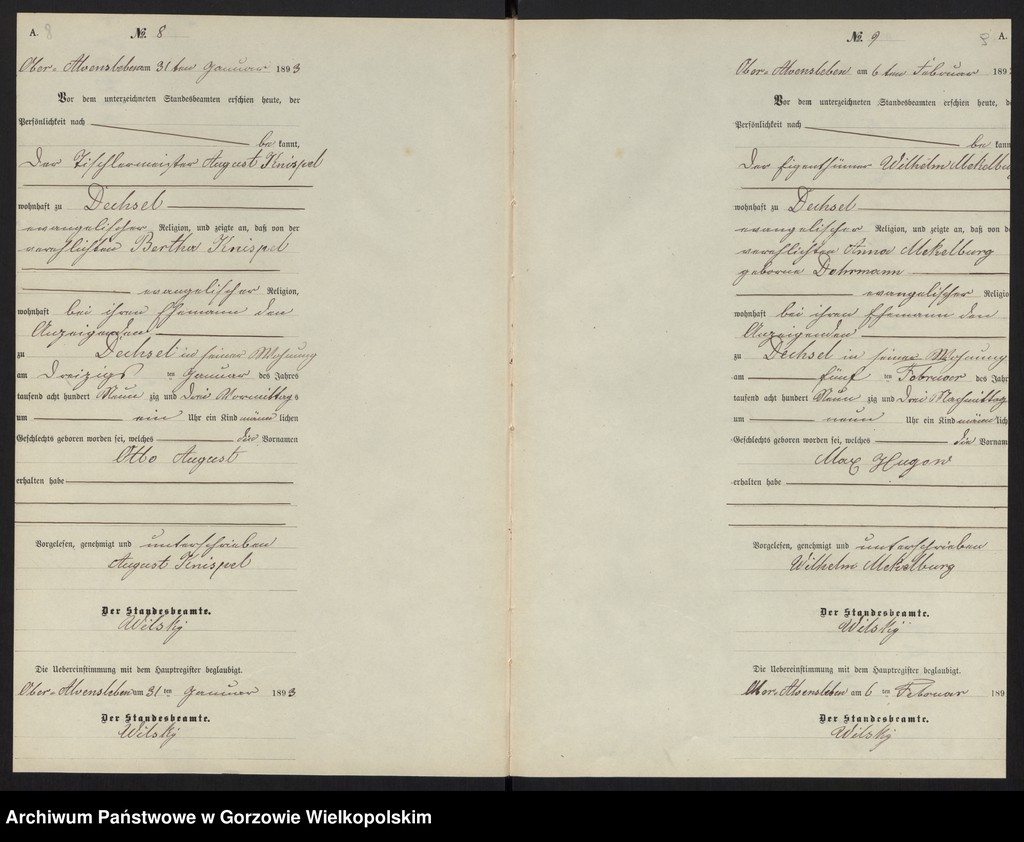 A. 8 No. 8
Ober-Alvensleben am 31ten Januar 1893
Vor dem unterzeichneten Standesbeamten erschien heute, der
Persönlichkeit nach
bekannt,
Der Tischlermeister August Knispel
wohnhaft zu Dechsel
evangelischer Religion, und zeigte an, daß von der
verehlichten Bertha Knispel
evangelischer Religion,
wohnhaft bei ihren Ehemann den
Anzeigenden
zu Dechsel in seiner Wohnung
am Dreizigs ten Januar des Jahres
tausend acht hundert Neun zig und Drei Vormittags
um ein Uhr ein Kind männlichen
Geschlechts geboren worden sei, welches die Vornamen
Otto August
erhalten habe
Vorgelesen, genehmigt und unterschrieben
August Knispel
Der Standesbeamte.
Wilsky
Die Uebereinstimmung mit dem Hauptregister beglaubigt.
Ober-Alvensleben am 31 ten Januar 1893
Der Standesbeamte.
Wilsky
No. 9 9 A.
Ober-Alvensleben am 6ten Februar 189
Vor dem unterzeichneten Standesbeamten erschien heute, d
Persönlichkeit nach
be kann
Der Eigenthümer Wilhelm Mekelbu
wohnhaft zu Dechsel
evangelischer Religion, und zeigte an, daß von d
verehlichten Anna Mekelburg
geborne Dohrmann
evangelischer Religio
wohnhaft bei ihren Ehemann den
Anzeigenden
zu Dechsel in seiner Wohnung
am fünf ten Februar des Jahr
tausend acht hundert Neun zig und Drei Nachmittag
um neun Uhr ein Kind männ lich
Geschlechts geboren worden sei, welches die Vornam
Max Hugow
erhalten habe
Vorgelesen, genehmigt und unterschrieben
Wilhelm Mekelburg
Der Standesbeamte.
Wilsky
Die Uebereinstimmung mit dem Hauptregister beglaubigt.
Ober-Alvensleben am 6 ten Februar 189
Der Standesbeamte.
Wilsky
Archiwum Państwowe w Gorzowie Wielkopolskim